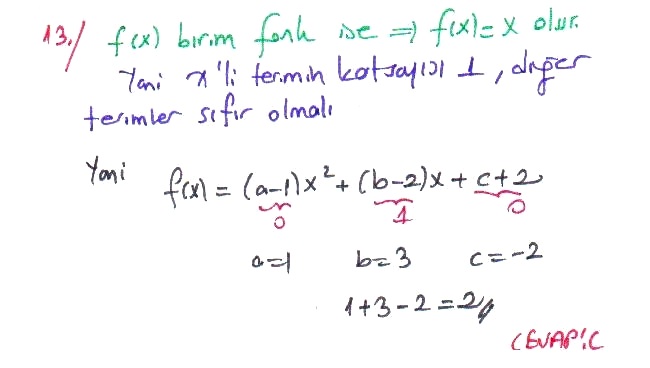 13./ f(x) birim fonk ise => f(x)=x olur.
Yani x'li termin katsayısı 1, diğer
terimler sıfır olmalı
Yani f(x) = (a-1)x² + (b-2)x + c+2
0 1 0
a=1 b=3 c=-2
1+3-2=2//
CEVAP:C